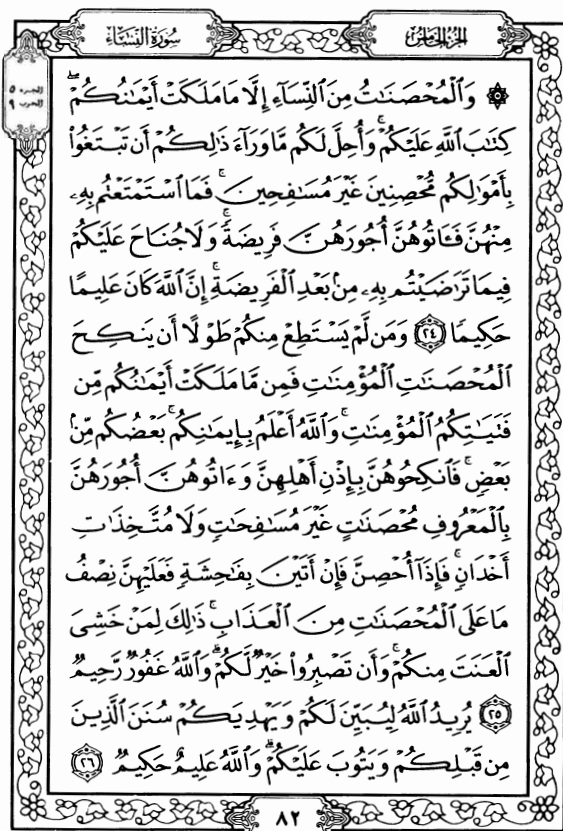 سورة النساء
الجزء الخامس
الجزء ٥
الحزب ٩
۞ وَٱلْمُحْصَنَـٰتُ مِنَ ٱلنِّسَآءِ إِلَّا مَا مَلَكَتْ أَيْمَـٰنُكُمْ ۖ
كِتَـٰبَ ٱللَّهِ عَلَيْكُمْ ۚ وَأُحِلَّ لَكُم مَّا وَرَآءَ ذَٰلِكُمْ أَن تَبْتَغُوا۟
بِأَمْوَٰلِكُم مُّحْصِنِينَ غَيْرَ مُسَـٰفِحِينَ ۚ فَمَا ٱسْتَمْتَعْتُم بِهِۦ
مِنْهُنَّ فَـَٔاتُوهُنَّ أُجُورَهُنَّ فَرِيضَةً ۚ وَلَا جُنَاحَ عَلَيْكُمْ
فِيمَا تَرَٰضَيْتُم بِهِۦ مِنۢ بَعْدِ ٱلْفَرِيضَةِ ۚ إِنَّ ٱللَّهَ كَانَ عَلِيمًا
حَكِيمًا ٢٤ وَمَن لَّمْ يَسْتَطِعْ مِنكُمْ طَوْلًا أَن يَنكِحَ
ٱلْمُحْصَنَـٰتِ ٱلْمُؤْمِنَـٰتِ فَمِن مَّا مَلَكَتْ أَيْمَـٰنُكُم مِّن
فَتَيَـٰتِكُمُ ٱلْمُؤْمِنَـٰتِ ۚ وَٱللَّهُ أَعْلَمُ بِإِيمَـٰنِكُم ۚ بَعْضُكُم مِّنۢ
بَعْضٍ ۚ فَٱنكِحُوهُنَّ بِإِذْنِ أَهْلِهِنَّ وَءَاتُوهُنَّ أُجُورَهُنَّ
بِٱلْمَعْرُوفِ مُحْصَنَـٰتٍ غَيْرَ مُسَـٰفِحَـٰتٍ وَلَا مُتَّخِذَٰتِ
أَخْدَانٍ ۚ فَإِذَآ أُحْصِنَّ فَإِنْ أَتَيْنَ بِفَـٰحِشَةٍ فَعَلَيْهِنَّ نِصْفُ
مَا عَلَى ٱلْمُحْصَنَـٰتِ مِنَ ٱلْعَذَابِ ۚ ذَٰلِكَ لِمَنْ خَشِىَ
ٱلْعَنَتَ مِنكُمْ ۚ وَأَن تَصْبِرُوا۟ خَيْرٌ لَّكُمْ ۗ وَٱللَّهُ غَفُورٌ رَّحِيمٌ
٢٥ يُرِيدُ ٱللَّهُ لِيُبَيِّنَ لَكُمْ وَيَهْدِيَكُمْ سُنَنَ ٱلَّذِينَ
مِن قَبْلِكُمْ وَيَتُوبَ عَلَيْكُمْ ۗ وَٱللَّهُ عَلِيمٌ حَكِيمٌ ٢٦
٨٢